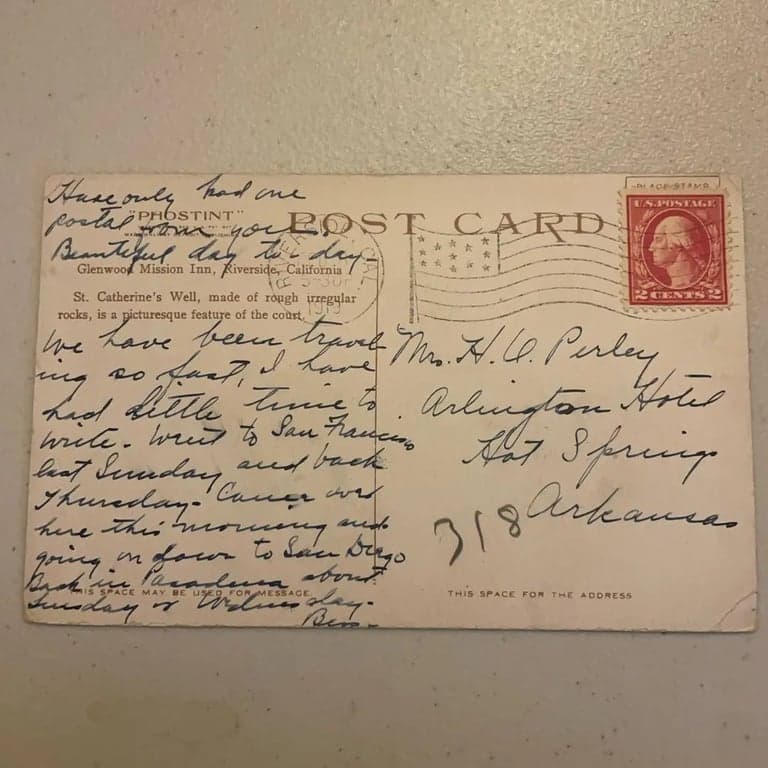 Have only had one
postal from you.
Beautiful day to day -
"PHOSTINT"
POST CARD
PLACE STAMP
U.S. POSTAGE
2 CENTS 2
RIVERSIDE, CAL.
1919
Glenwood Mission Inn, Riverside, California
St. Catherine's Well, made of rough irregular
rocks, is a picturesque feature of the court.
We have been travel
ing so fast, I have
had little time to
write. Went to San Francisco
last Sunday and back
Thursday - Came over
here this morning and
going on down to San Diego
Back in Pasadena about
or Wednesday -
THIS SPACE MAY BE USED FOR MESSAGE.
Mrs. H. O. Perley
Arlington Hotel
Hot Springs
Arkansas
318
THIS SPACE FOR THE ADDRESS